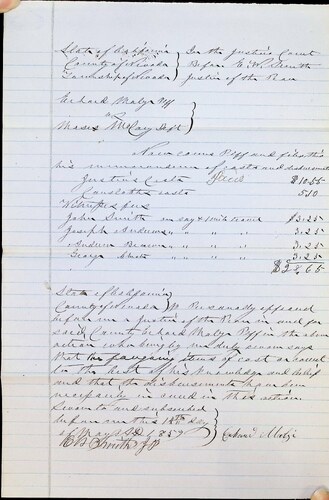 State of California } In the Justice Court
County of Nevada } Before E. W. Smith
Township of Nevada } Justice of the Peace
Gerhard Plff
vs
Moses McCoy Deft
Now comes Plff and files this
his memorandum of costs and disbursments
Justice's Costs $10.55
Constables costs 5.10
Witnesses fees
John Smith one day & 10 mile travel $3.25
Joseph Andrews " " " " 3.25
Andrew " " " " 3.25
George " " " " 3.25
$28.65
State of California
County of Nevada } Personally appeared
before me a Justice of the Peace in and for
said County Gerhard Plff in the above
action who being by me duly sworn says
that the items of cost are correct
to the best of his knowledge and belief
and that the disbursements have been
necessarily incurred in this action.
Sworn to and subscribed
before me this 18th day
of May A.D. 1859
Smith J.P.